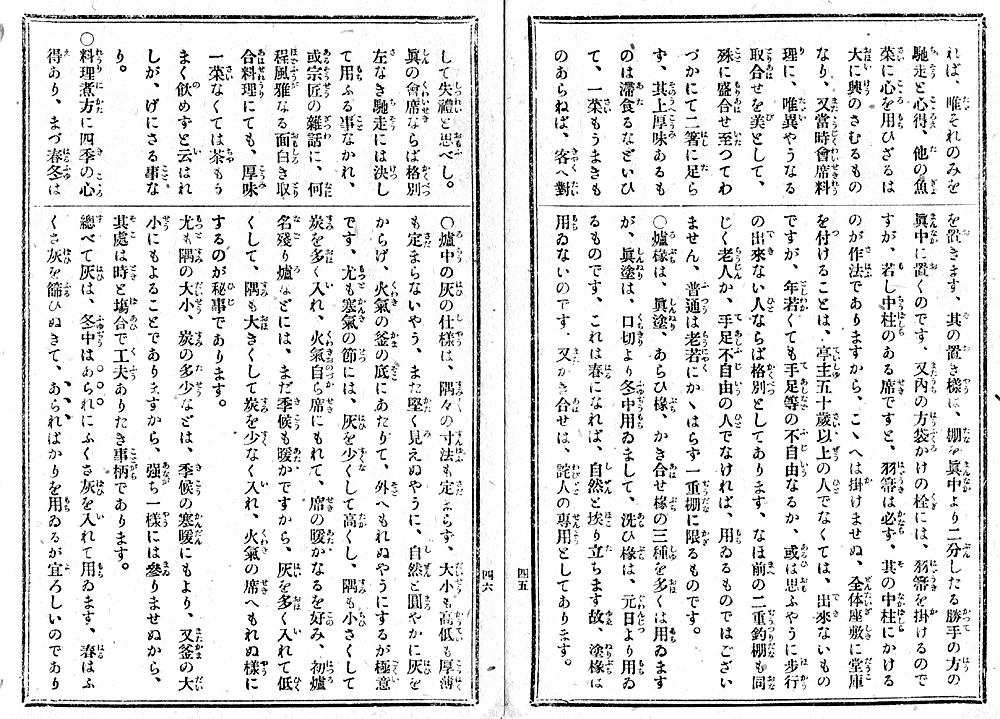 れば、唯それのみを
馳走と心得、他の魚
菜に心を用ひざるは
大に興のさむるもの
なり、又當時會席料
理に、唯異やうなる
取合せを美として、
殊に盛合せ至つてわ
づかにて二箸に足ら
ず、其上厚味あるも
のは滯食るなどいひ
て、一菜もうまきも
のあらねば、客へ對
を置きます、其の置き樣は、棚を眞中より二分したる勝手の方の
眞中に置くのです、又内の方袋かけの栓には、羽箒を掛けるので
すが、若し中柱のある席ですと、羽箒は必す、其の中柱にかける
のが作法でありますから、こゝへは掛けませぬ、全体座敷に堂庫
を付けることは、亭主五十歲以上の人でなくては、出來ないもの
ですが、年若くても手足等の不自由なるか、或は思ふやうに步行
の出來ない人ならば格別としてあります、なほ前の二重釣棚も同
じく老人か、手足不自由の人でなければ、用ゐるものではござい
ません、普通は老若にかゝはらず一重棚に限るものです。
〇爐椽は、眞塗、あらひ椽、かき合せ椽の三種を多くは用ゐます
が、眞塗は、口切より冬中用ゐまして、洗ひ椽は、元日より用ゐ
るものです、これは春になれば、自然と埃り立ちます故、塗椽は
用ゐないのです、又かき合せは、詫人の專用としてあります。
四五
して失禮と思べし。
眞の會席ならば格別
左なき馳走には決し
て用ふる事なかれ、
或宗匠の雜話に、何
程風雅なる面白き取
合料理にても、厚味
一菜なくては茶もう
まく飮めすと云はれ
しが、げにさる事な
り。
〇料理煮方に四季の心
得あり、まづ春冬は
〇爐中の灰の仕樣は、隅々の寸法も定まらす、大小も高低も厚薄
も定まらないやう、また堅く見えぬやうに、自然と圓やかに灰を
からげ、火氣の釜の底にあたりて、外へもれぬやうにするが極意
です、尤も塞氣の節には、灰を少くして高くし、隅も小さくして
炭を多く入れ、火氣自ら席にもれて、席の暖かなるを好み、初爐
名殘り爐などには、まだ季候も暖かですから、灰を多く入れて低
くして、隅も大きくして炭を少なく入れ、火氣の席へもれぬ樣に
するのが秘事であります。
尤も隅の大小、炭の多少などは、季候の寒暖にもより、又釜の大
小にもよることでありますから、强ち一樣には參りませぬから、
其處は時と塲合で工夫ありたき事柄であります。
總べて灰は、冬中はあられにふくさ灰を入れて用ゐます、春はふ
くさ灰を篩ひぬきて、あらればかりを用ゐるが宜ろしいのであり
四六